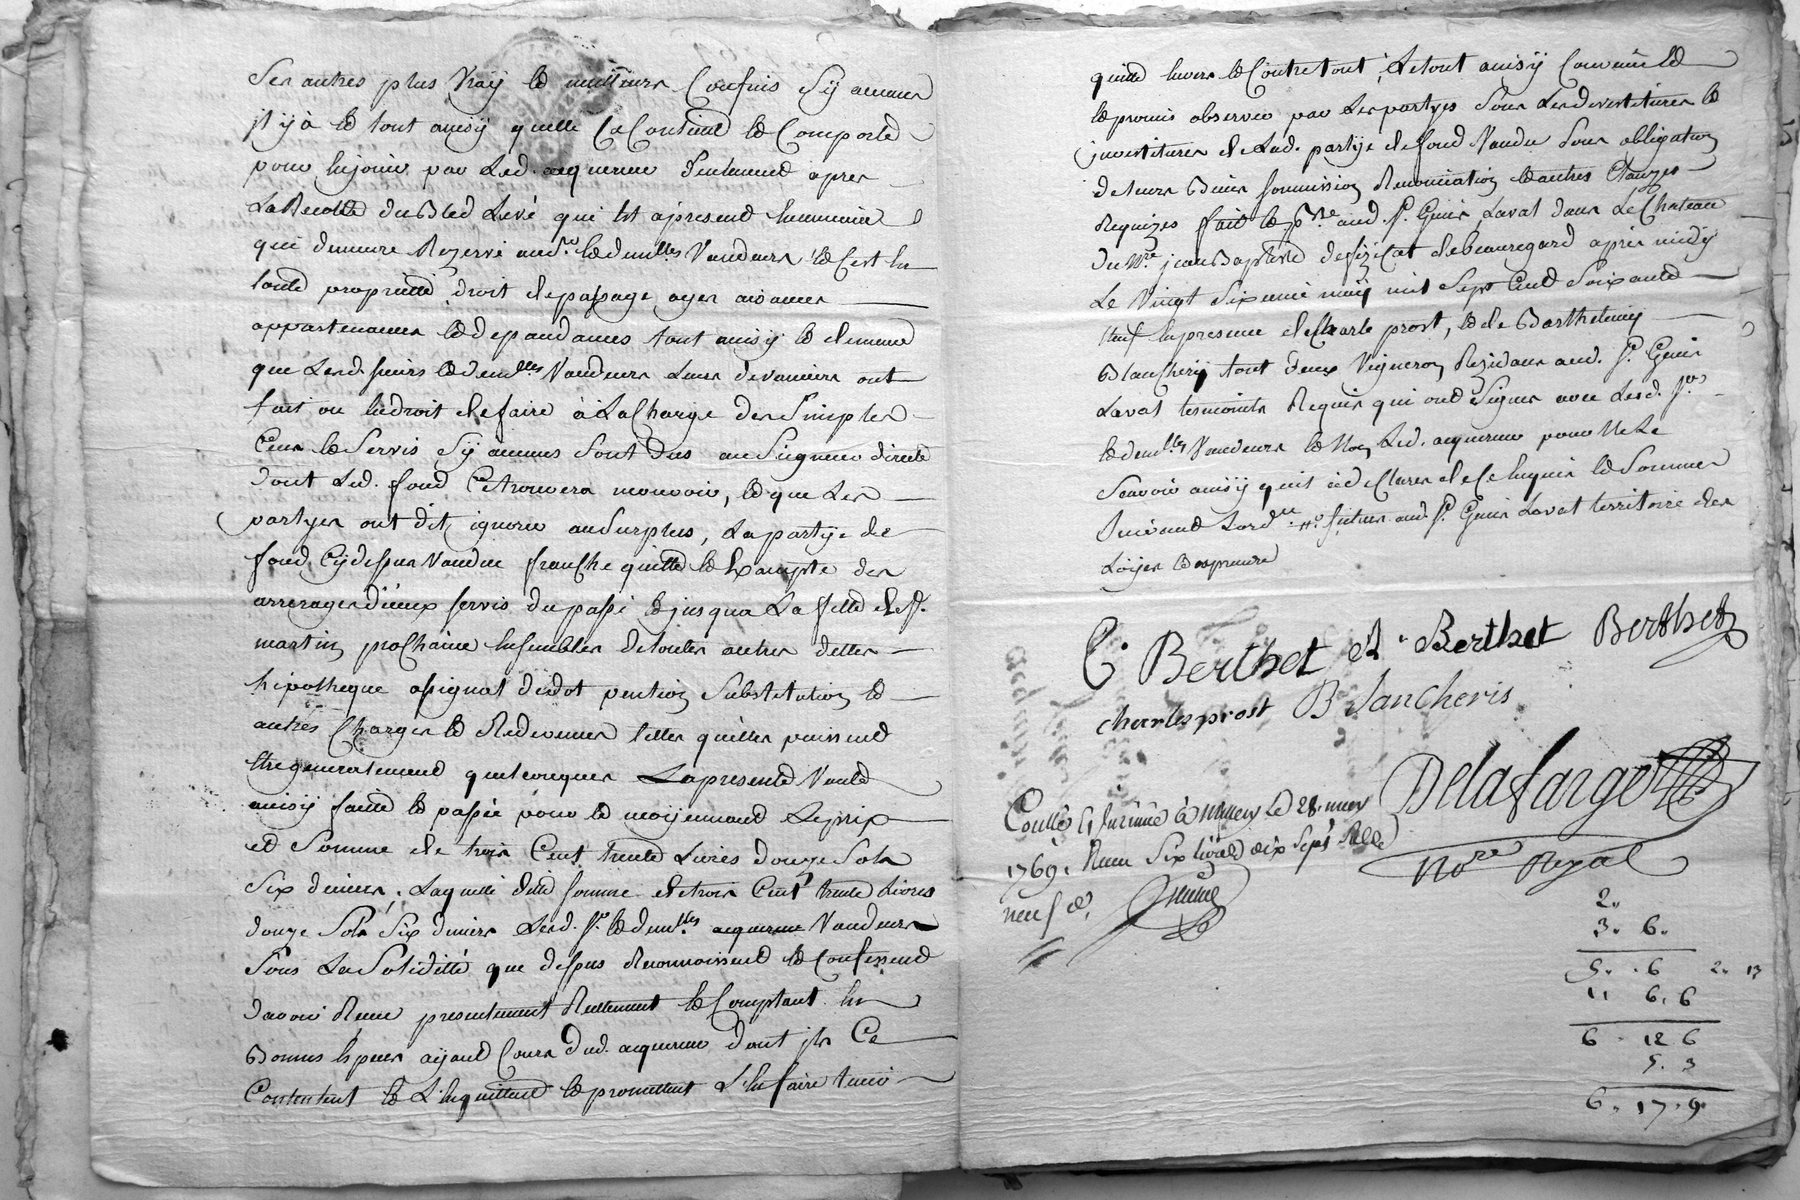 ses autres plus vray et meilleurs confins sy aucuns
jl y à et tout ainsy quelle ce Contient et Comporte
pour enjouir par Led. acquereur seulement apres
La Recolte du Bled Levé qui est apresent
qui demeure Rezervé aud. et demlles Vandeurs et C'est en
toute proprietté droit de passage, ayer aisances
appartenances et depandances tout ainsy et de meme
que Lesd. sieurs et demlles Vandeurs Leurs devanciers ont
fait ou eu droit de faire à La Charge des Simples
Cens et Servis sy aucuns sont dus au Seigneur directe
dont Led. fond Ce trouvera mouvoir, et que Les
partyes ont dit ignorer au surplus, La partye de
fond Cy dessus Vandue franche quitte et Exampte des
arrerages d'jceux servis du passé et jusqua La fette de St.
martin prochaine Ensembles de toutes autres dettes
hipotheque assignat de dot pention substitution et
autres Charges et Redevances telles quelles puissent
Etre generalement quelconques La presente Vante
ainsy faitte et passée pour et moyennant Le prix
et Somme de trois Cent trente Livres douze Sols
Six deniers, Laquelle ditte somme de trois Cent trente Livres
douze Sols Six deniers Lesd. Sr. et demlles acquereur Vandeurs
Sous La Soliditté que dessus Reconnoissent et Confessent
davoir Reçu presentement Reellement et Comptant En
Bonnes Especes ayant Cours dud. acquereur dont jls Ce
Contentent et L'Enquittent et promettent L'En faire tenir
quitte Envers et Contre tout, Le tout ainsy Convenu et
et promis observer par Les partyes sous Les devestitures et
jnvestitures de Lad. partye de fond Vandu sous obligation
de Leurs Biens soumission Renonciation et autres Clauzes
Requizes fait et passé aud. St. Genis Laval dans Le Chateau
du Mre jean Baptiste de beauregard après midy
Le Vingt Sixieme may mil Sept Cent Soixante
Neuf En presence de Charle prost, et de Barthelemy
Blanchery tout deux Vigneron Rezidans aud. St. Genis
Laval temoints Requis qui ont Signés avec Lesd. Srs
et demlles Vandeurs et Non Led. acquereur pour Ne Le
Scavoir ainsy quil à declaré de Ce Enquis et Sommés
Suivant Lord.ce aud. St. Genis Laval territoire des
Loÿes et aspreure
C. Berthet R. Berthet Berthet
charles prost Blancheris
Delafarge
Nore Royal
Contlé Et Insinué à le 28. may
1769. Reçu Six livres dix Sept Sols
neuf d.
2.
3. 6.
5. . 6 2. 13
11 6. 6
6 . 12 6
5. 3
6. 17. 9.